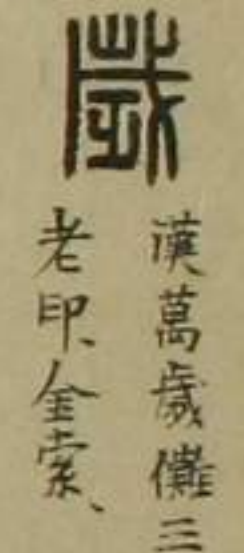 歲
漢萬歲儺三
老印、金索、